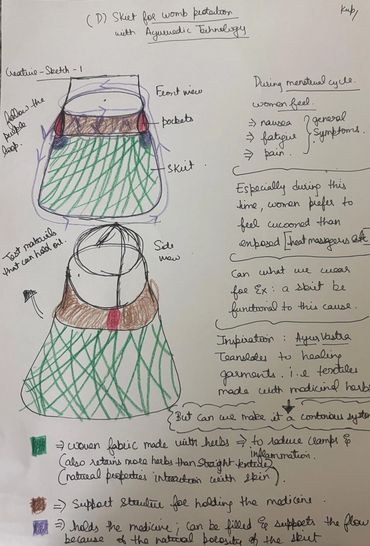 (D) Skirt for womb protection
with Ayurvedic Technology
Creative - Sketch - 1
follow the
purple
loop.
Front view
pockets
Skirt
Side
view
Test materials
that can hold oil.
During menstrual cycle.
women feel.
⇒ nausea
⇒ fatigue
⇒ pain.
general
symptoms.
Especially during this
time, women prefer to
feel cocooned than
exposed [heat massagers etc
Can what we wear
for Ex: a skirt be
functional to this cause.
Inspiration: AyurVastra
Translates to healing
garments. i.e textiles
made with medicinal herbs
But can we make it a continous system
⇒ woven fabric made with herbs ⇒ to reduce cramps &
inflammation.
(also retains more herbs than straight textile)
(natural properties interaction with skin)
⇒ Support structure for holding the medicine.
⇒ holds the medicine; can be filled & supports the flow
because of the natural porosity of the skirt